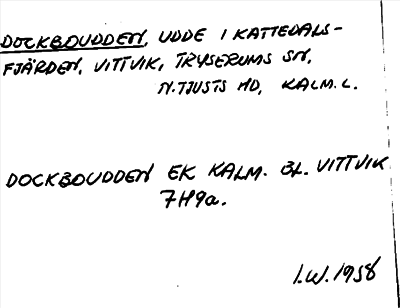 DOCKBOUDDEN, UDDE I KATTEDALS-
FJÄRDEN, VITTVIK, TRYSERUMS SN,
N. TJUSTS HD, KALM. L.
DOCKBOUDDEN EK KALM. BL. VITTVIK
7H9a.
I.W. 1958